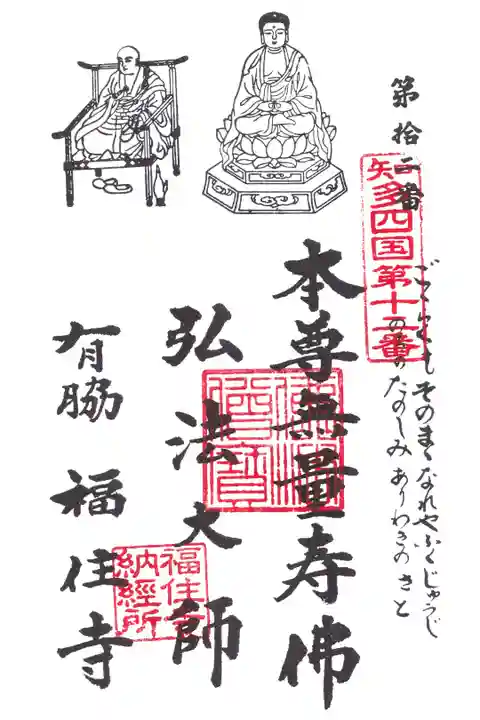 第拾二番
知多四国第十二番
ごくらくもそのまゝなれやふくじゅうじ
のりのたのしみありわきのさと
本尊無量寿佛
弘法大師
佛法僧寶
有脇 福住寺
福住寺
納経所